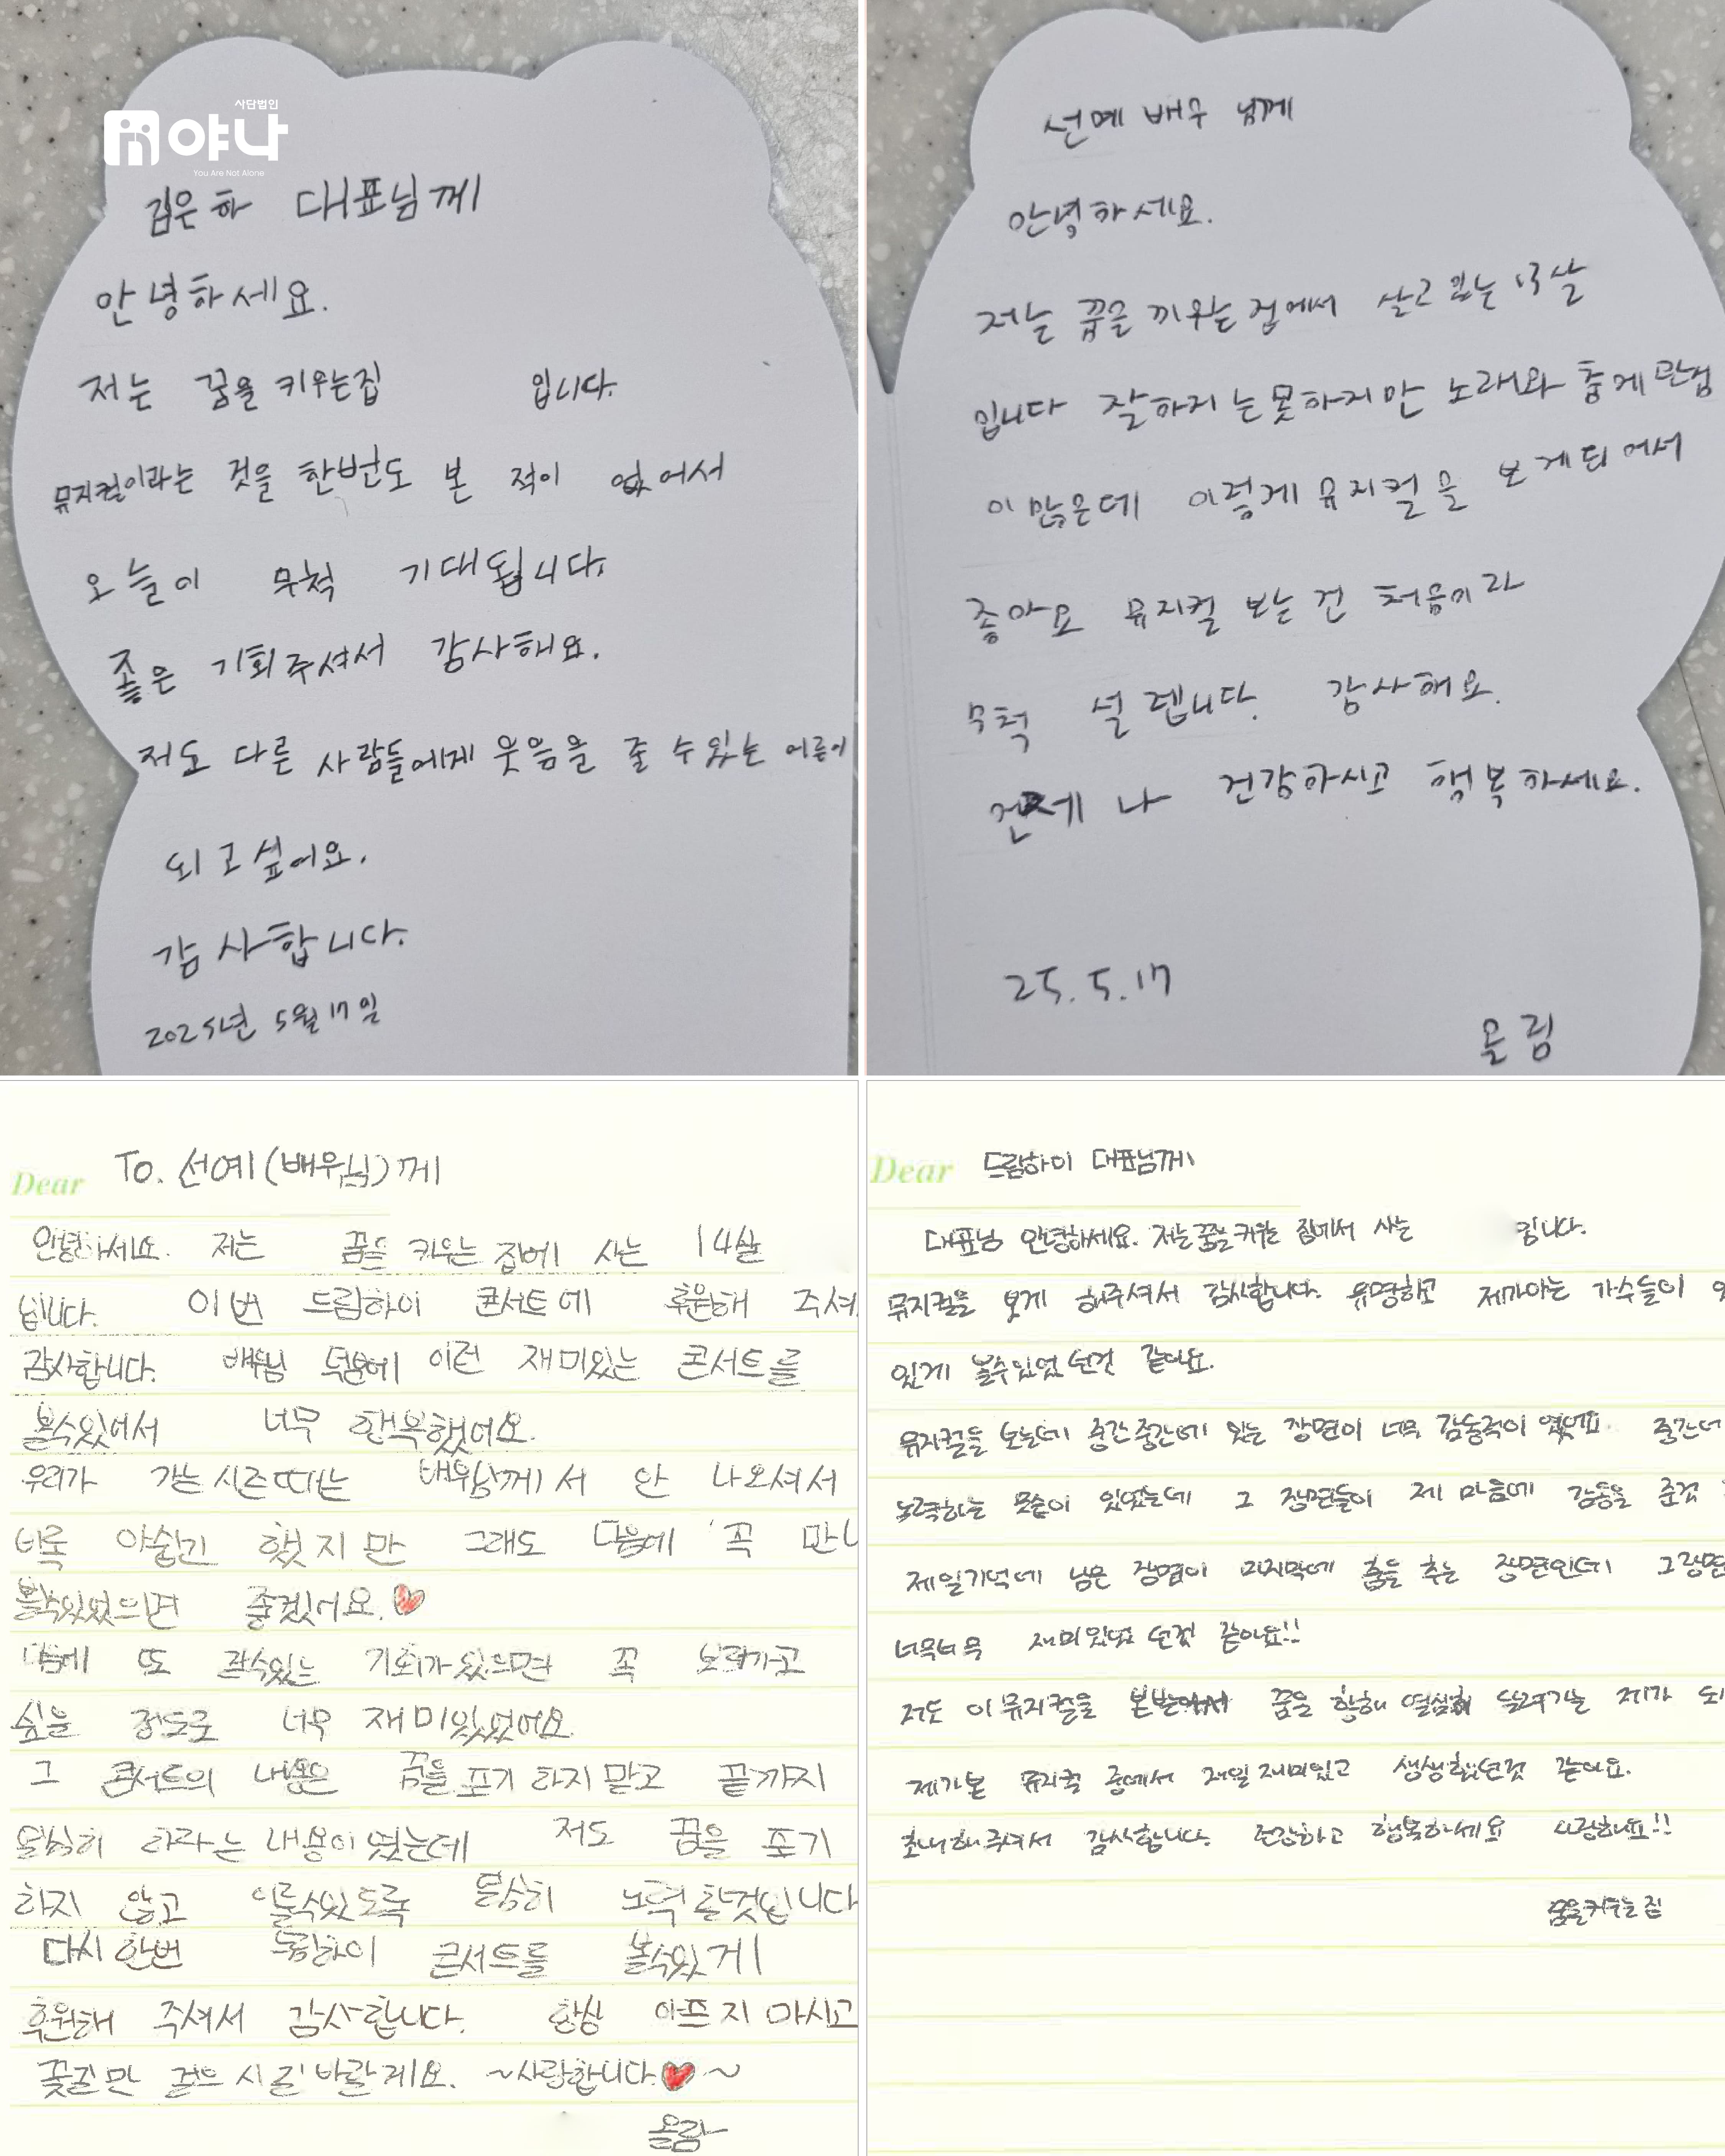 사단법인
야나
You Are Not Alone
김은하 대표님께
안녕하세요.
저는 꿈을 키우는집 입니다.
뮤지컬이라는 것을 한번도 본 적이 없어서
오늘이 무척 기대됩니다.
좋은 기회주셔서 감사해요.
저도 다른 사람들에게 웃음을 줄 수있는 어른이
되고싶어요.
감사합니다.
2025년 5월 17일
선예 배우 님께
안녕하세요.
저는 꿈을 끼우는 집에서 살고 있는 13살
입니다 잘하지는못하지만 노래와 춤에관심
이 많은데 이렇게 뮤지컬을 보게되어서
좋아요 뮤지컬 보는 건 처음이라
무척 설렙니다. 감사해요.
언제나 건강하시고 행복하세요.
25.5.17
올림
Dear To. 선예(배우님)께
안녕하세요. 저는 꿈을 키우는 집에 사는 14살
입니다. 이번 드림하이 콘서트에 후원해 주셔
감사합니다. 배우님 덕분에 이런 재미있는 콘서트를
볼수있어서 너무 행복했어요.
우리가 갔는 시즌때는 배우님께서 안 나오셔서
비록 아쉽긴 했지만 그래도 다음에 꼭 만나
볼수있었으면 좋겠어요.
다음에 또 볼수있는 기회가있으면 꼭 보러가고
싶을 정도로 너무 재미있었어요.
그 콘서트의 내용은 꿈을 포기 하지말고 끝까지
열심히 하라는 내용이였는데 저도 꿈을 포기
하지 않고 이룰수있도록 열심히 노력할것입니다
다시한번 드림하이 콘서트를 볼수있게
후원해 주셔서 감사합니다. 항상 아프지마시고
꽃길만 걸으시길 바랄게요. ~사랑합니다. ~
올림
Dear 드림하이 대표님께
대표님 안녕하세요. 저는꿈을키우는 집에서 사는 입니다.
뮤지컬을 보게 해주셔서 감사합니다. 유명하고 제가아는 가수들이
있게 볼수있었던것 같아요.
뮤지컬을 보는데 중간중간에 있는 장면이 너무 감동적이 였어요. 중간에
노력하는 모습이 있었는데 그 장면들이 제 마음에 감동을 준것
제일기억에 남은 장면이 마지막에 춤을 추는 장면인데 그장면
너무너무 재미있었던것 같아요!!
저도 이 뮤지컬을 본받아서 꿈을 향해 열심히 달려가는 제가 되
제가본 뮤지컬 중에서 제일재미있고 생생했던것 같아요.
초대해주셔서 감사합니다. 건강하고 행복하세요 사랑해요!!
꿈을키우는집